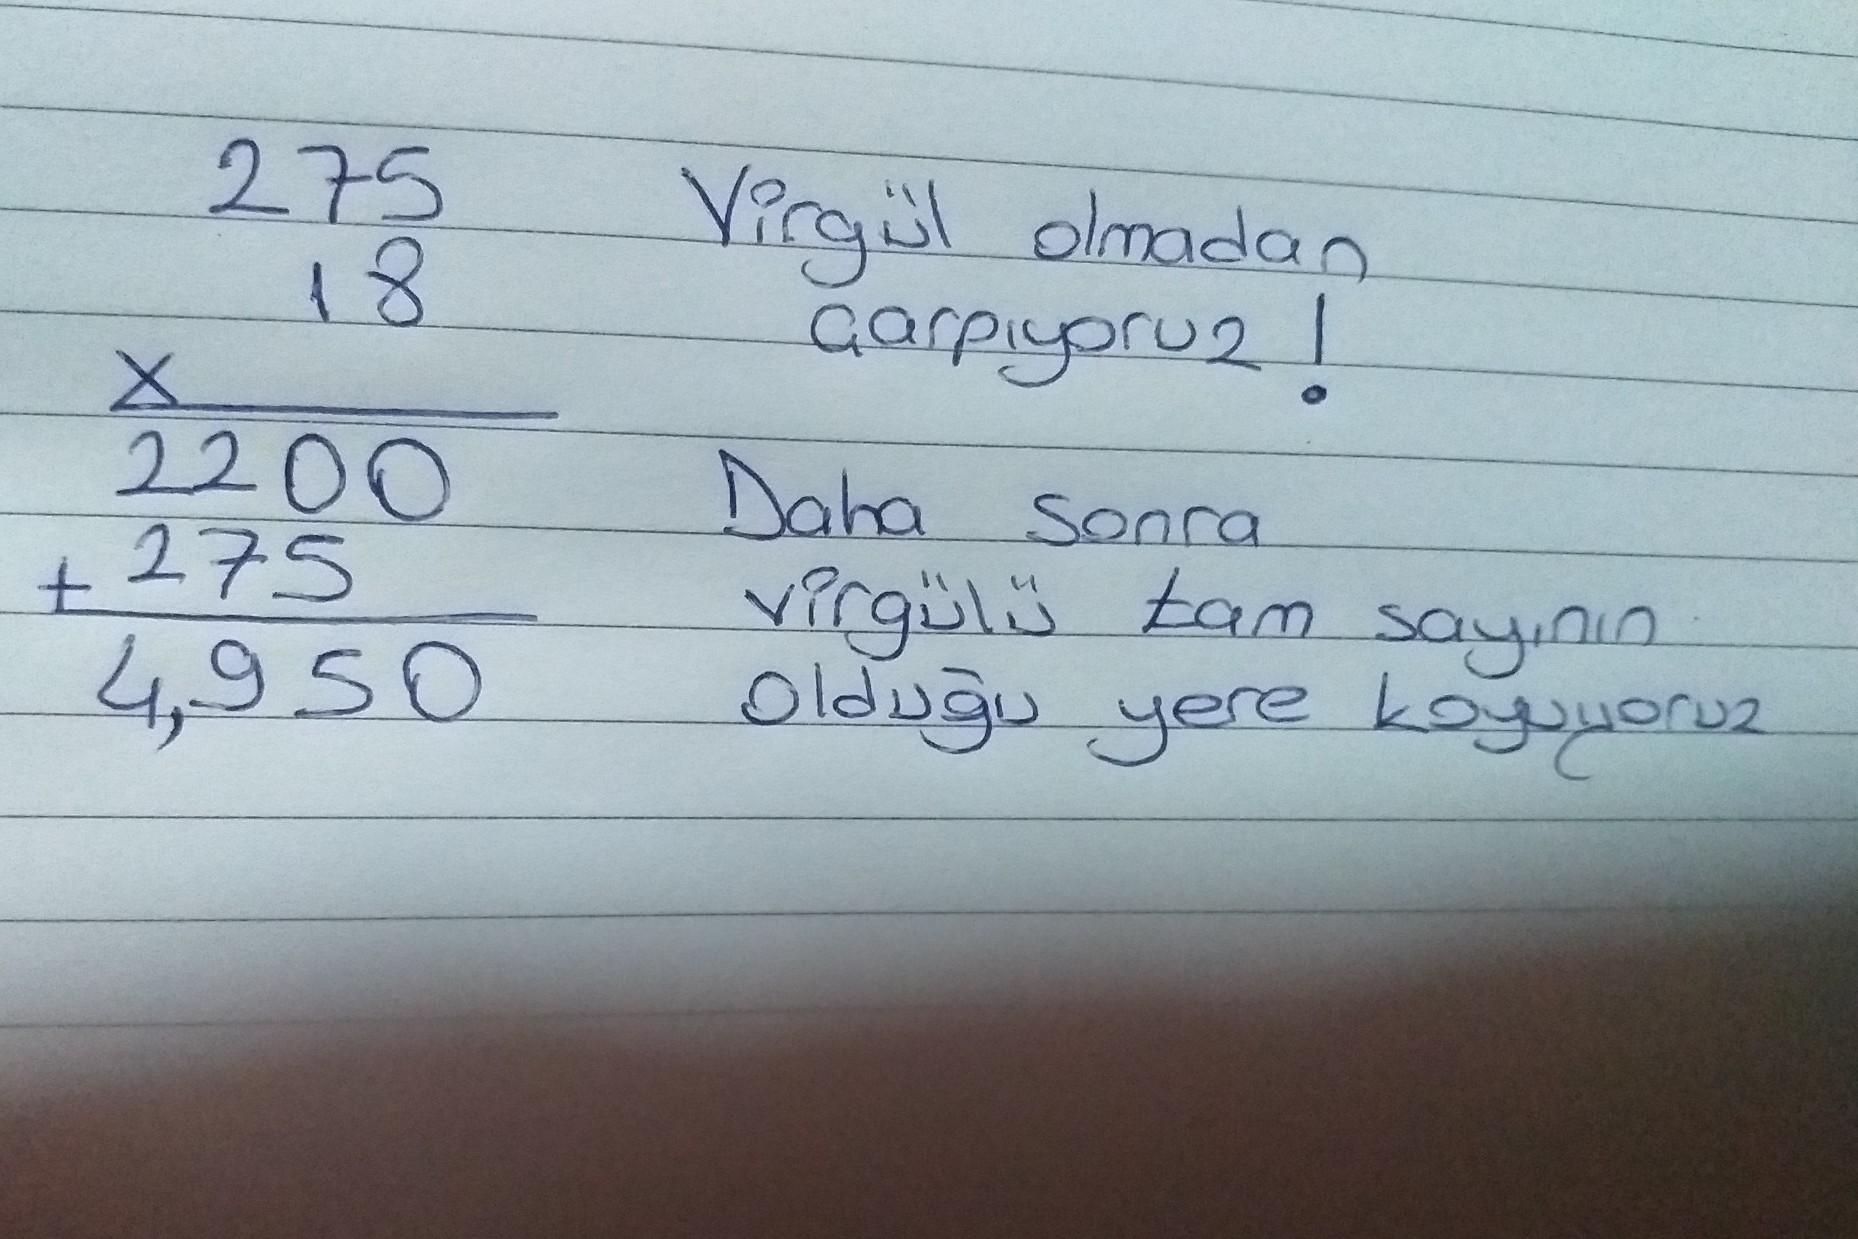 275
18
x
2200
+ 275
4,950
Virgül olmadan
Çarpıyoruz !
Daha sonra
virgülü tam sayının
olduğu yere koyuyoruz